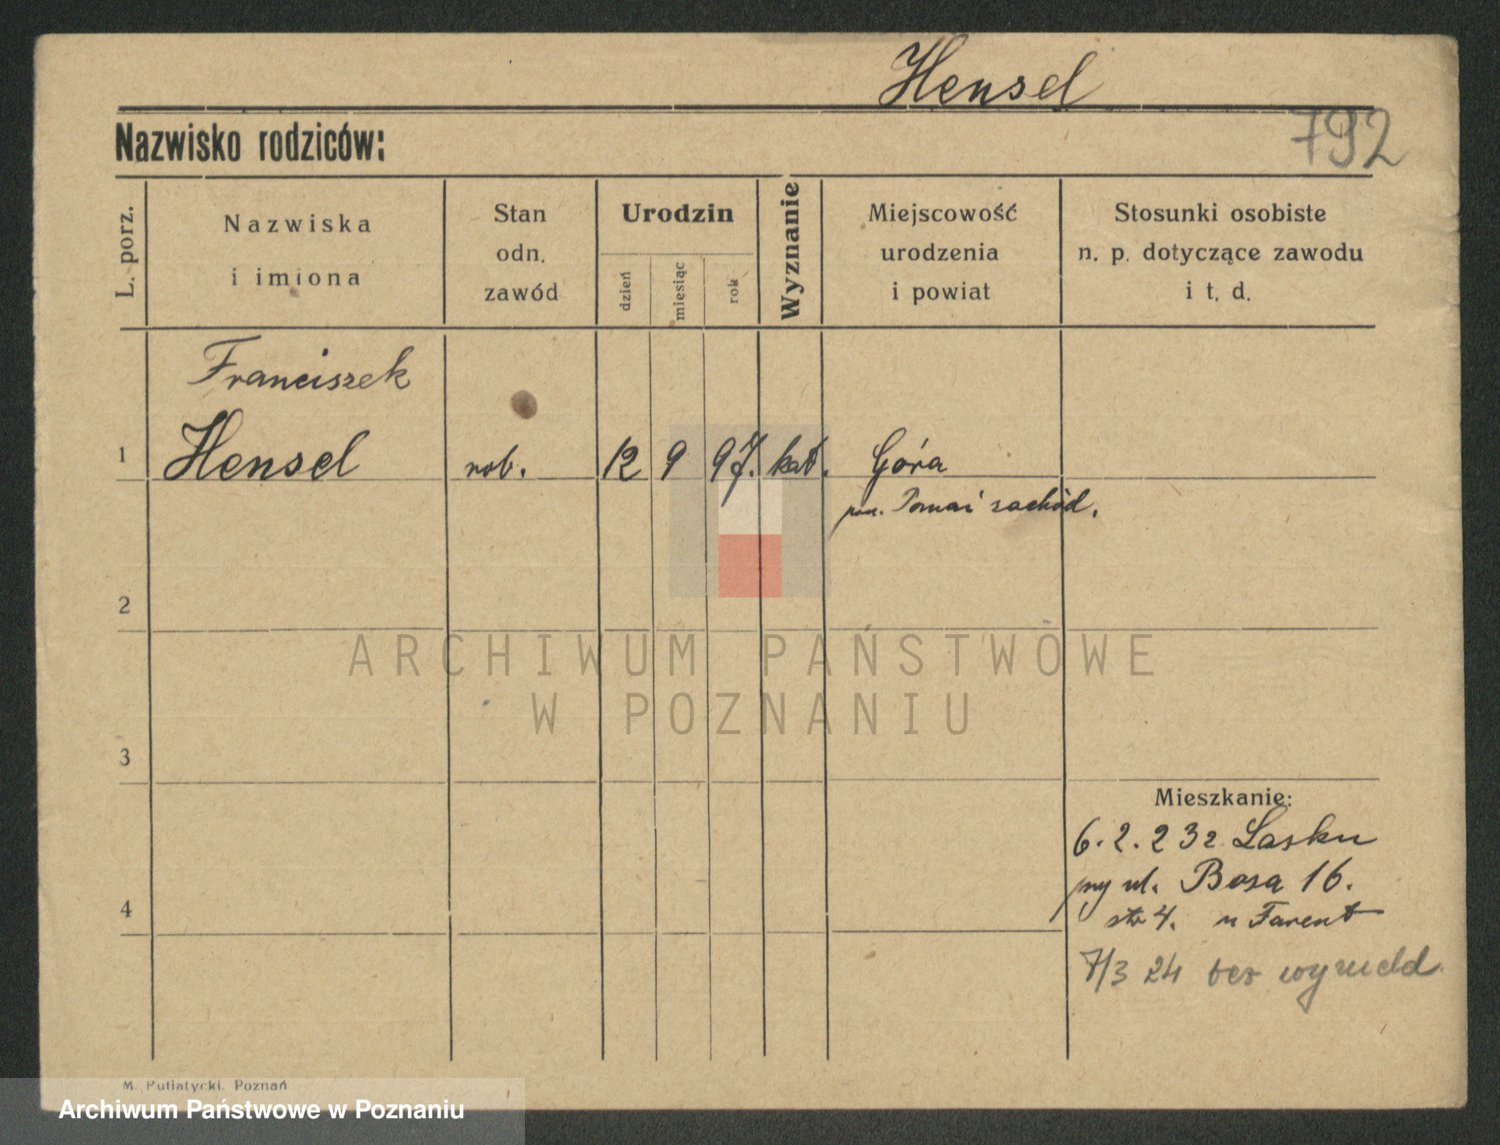 Hensel
792
Nazwisko rodziców:
L. porz.
Nazwiska
i imiona
Stan
odn.
zawód
Urodzin
dzień
miesiąc
rok
Wyznanie
Miejscowość
urodzenia
i powiat
Stosunki osobiste
n. p. dotyczące zawodu
i t. d.
Franciszek
1 Hensel rob. 12 9 97. kat. Góra
zachód.
2
ARCHIWUM PAŃSTWOWE
W POZNANIU
3
Mieszkanie:
6. 2. 23 z Lasku
przy ul. Bosa 16.
4
str 4. u Farent
7/3 24 bez wymeld
M. Putiatycki. Poznań
Archiwum Państwowe w Poznaniu